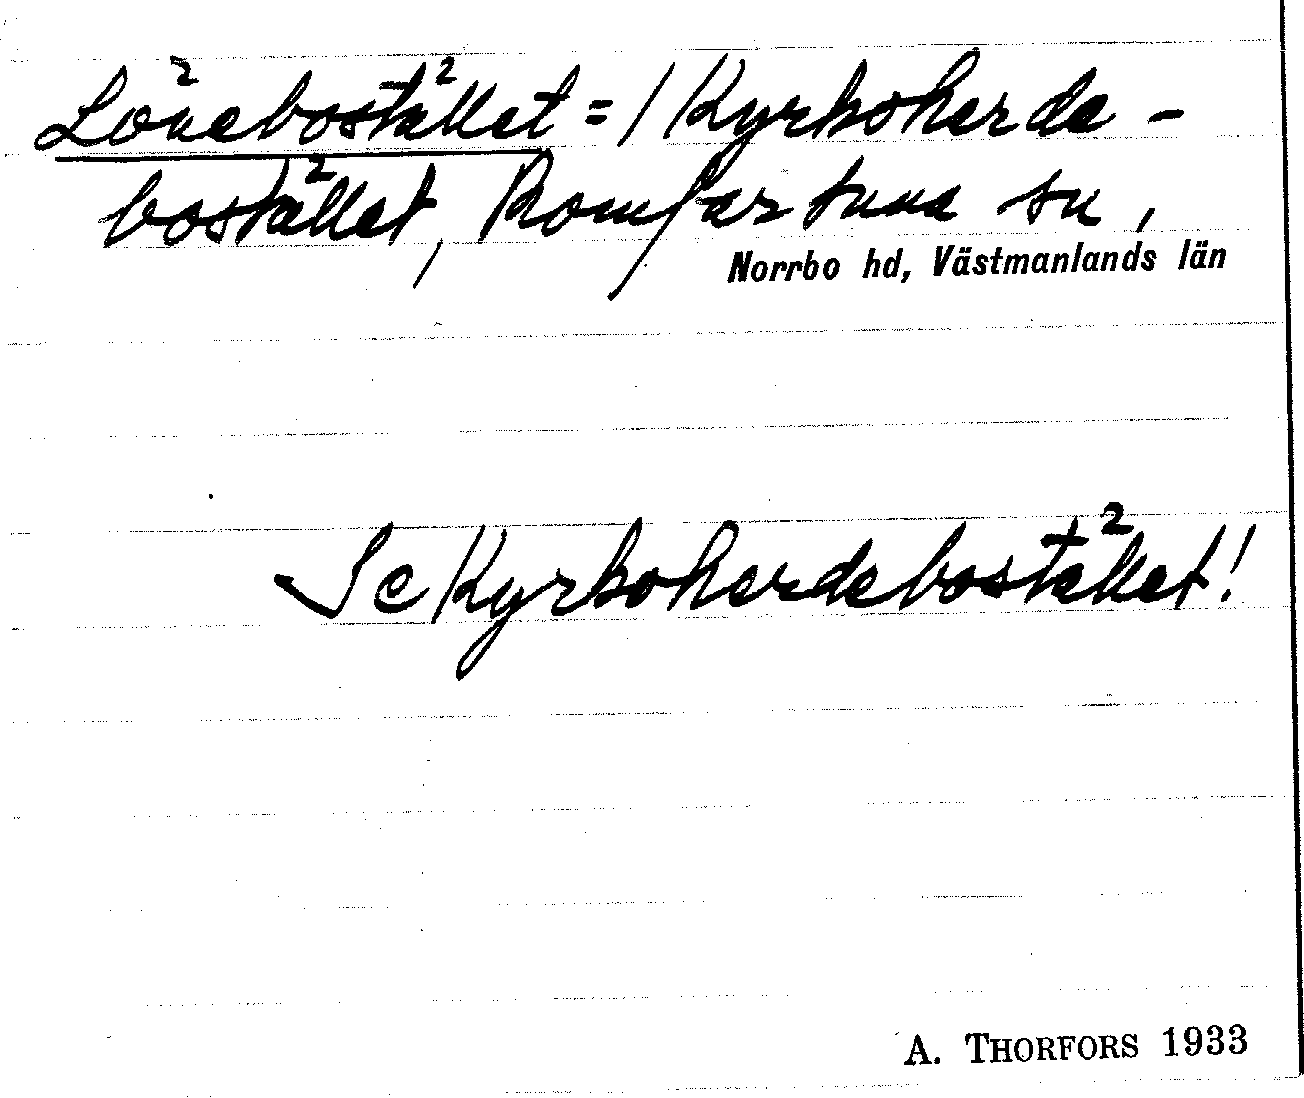 Lönebostället = / Kyrkoherde-
bostället, Romfartuna sn,
Norrbo hd, Västmanlands län
Se Kyrkoherdebostället!
A. THORFORS 1933